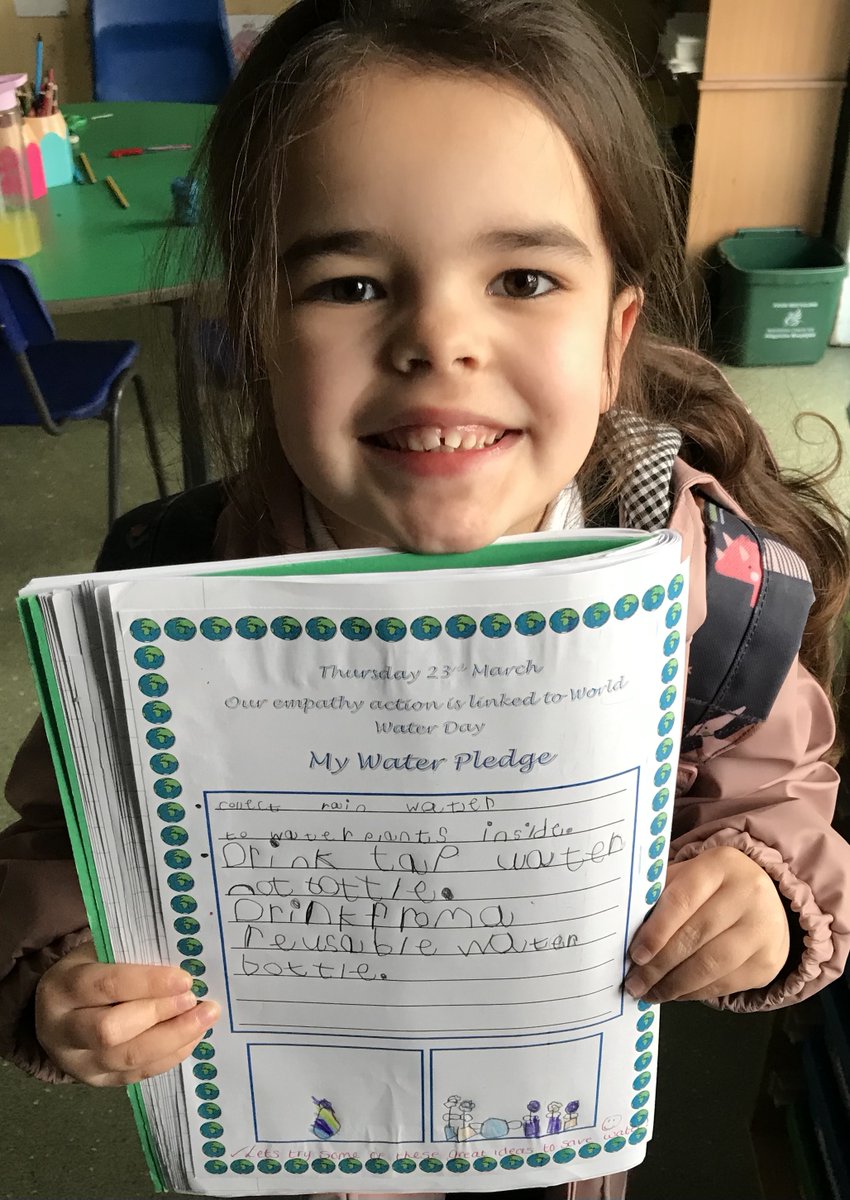 Thursday 23rd March
Our empathy action is linked to World
Water Day
My Water Pledge
collect rain water
to water plants inside.
Drink tap water
not bottle.
Drink from a
reusable water
bottle.
✓ Lets try some of these great ideas to save water
FOOD RECYCLING